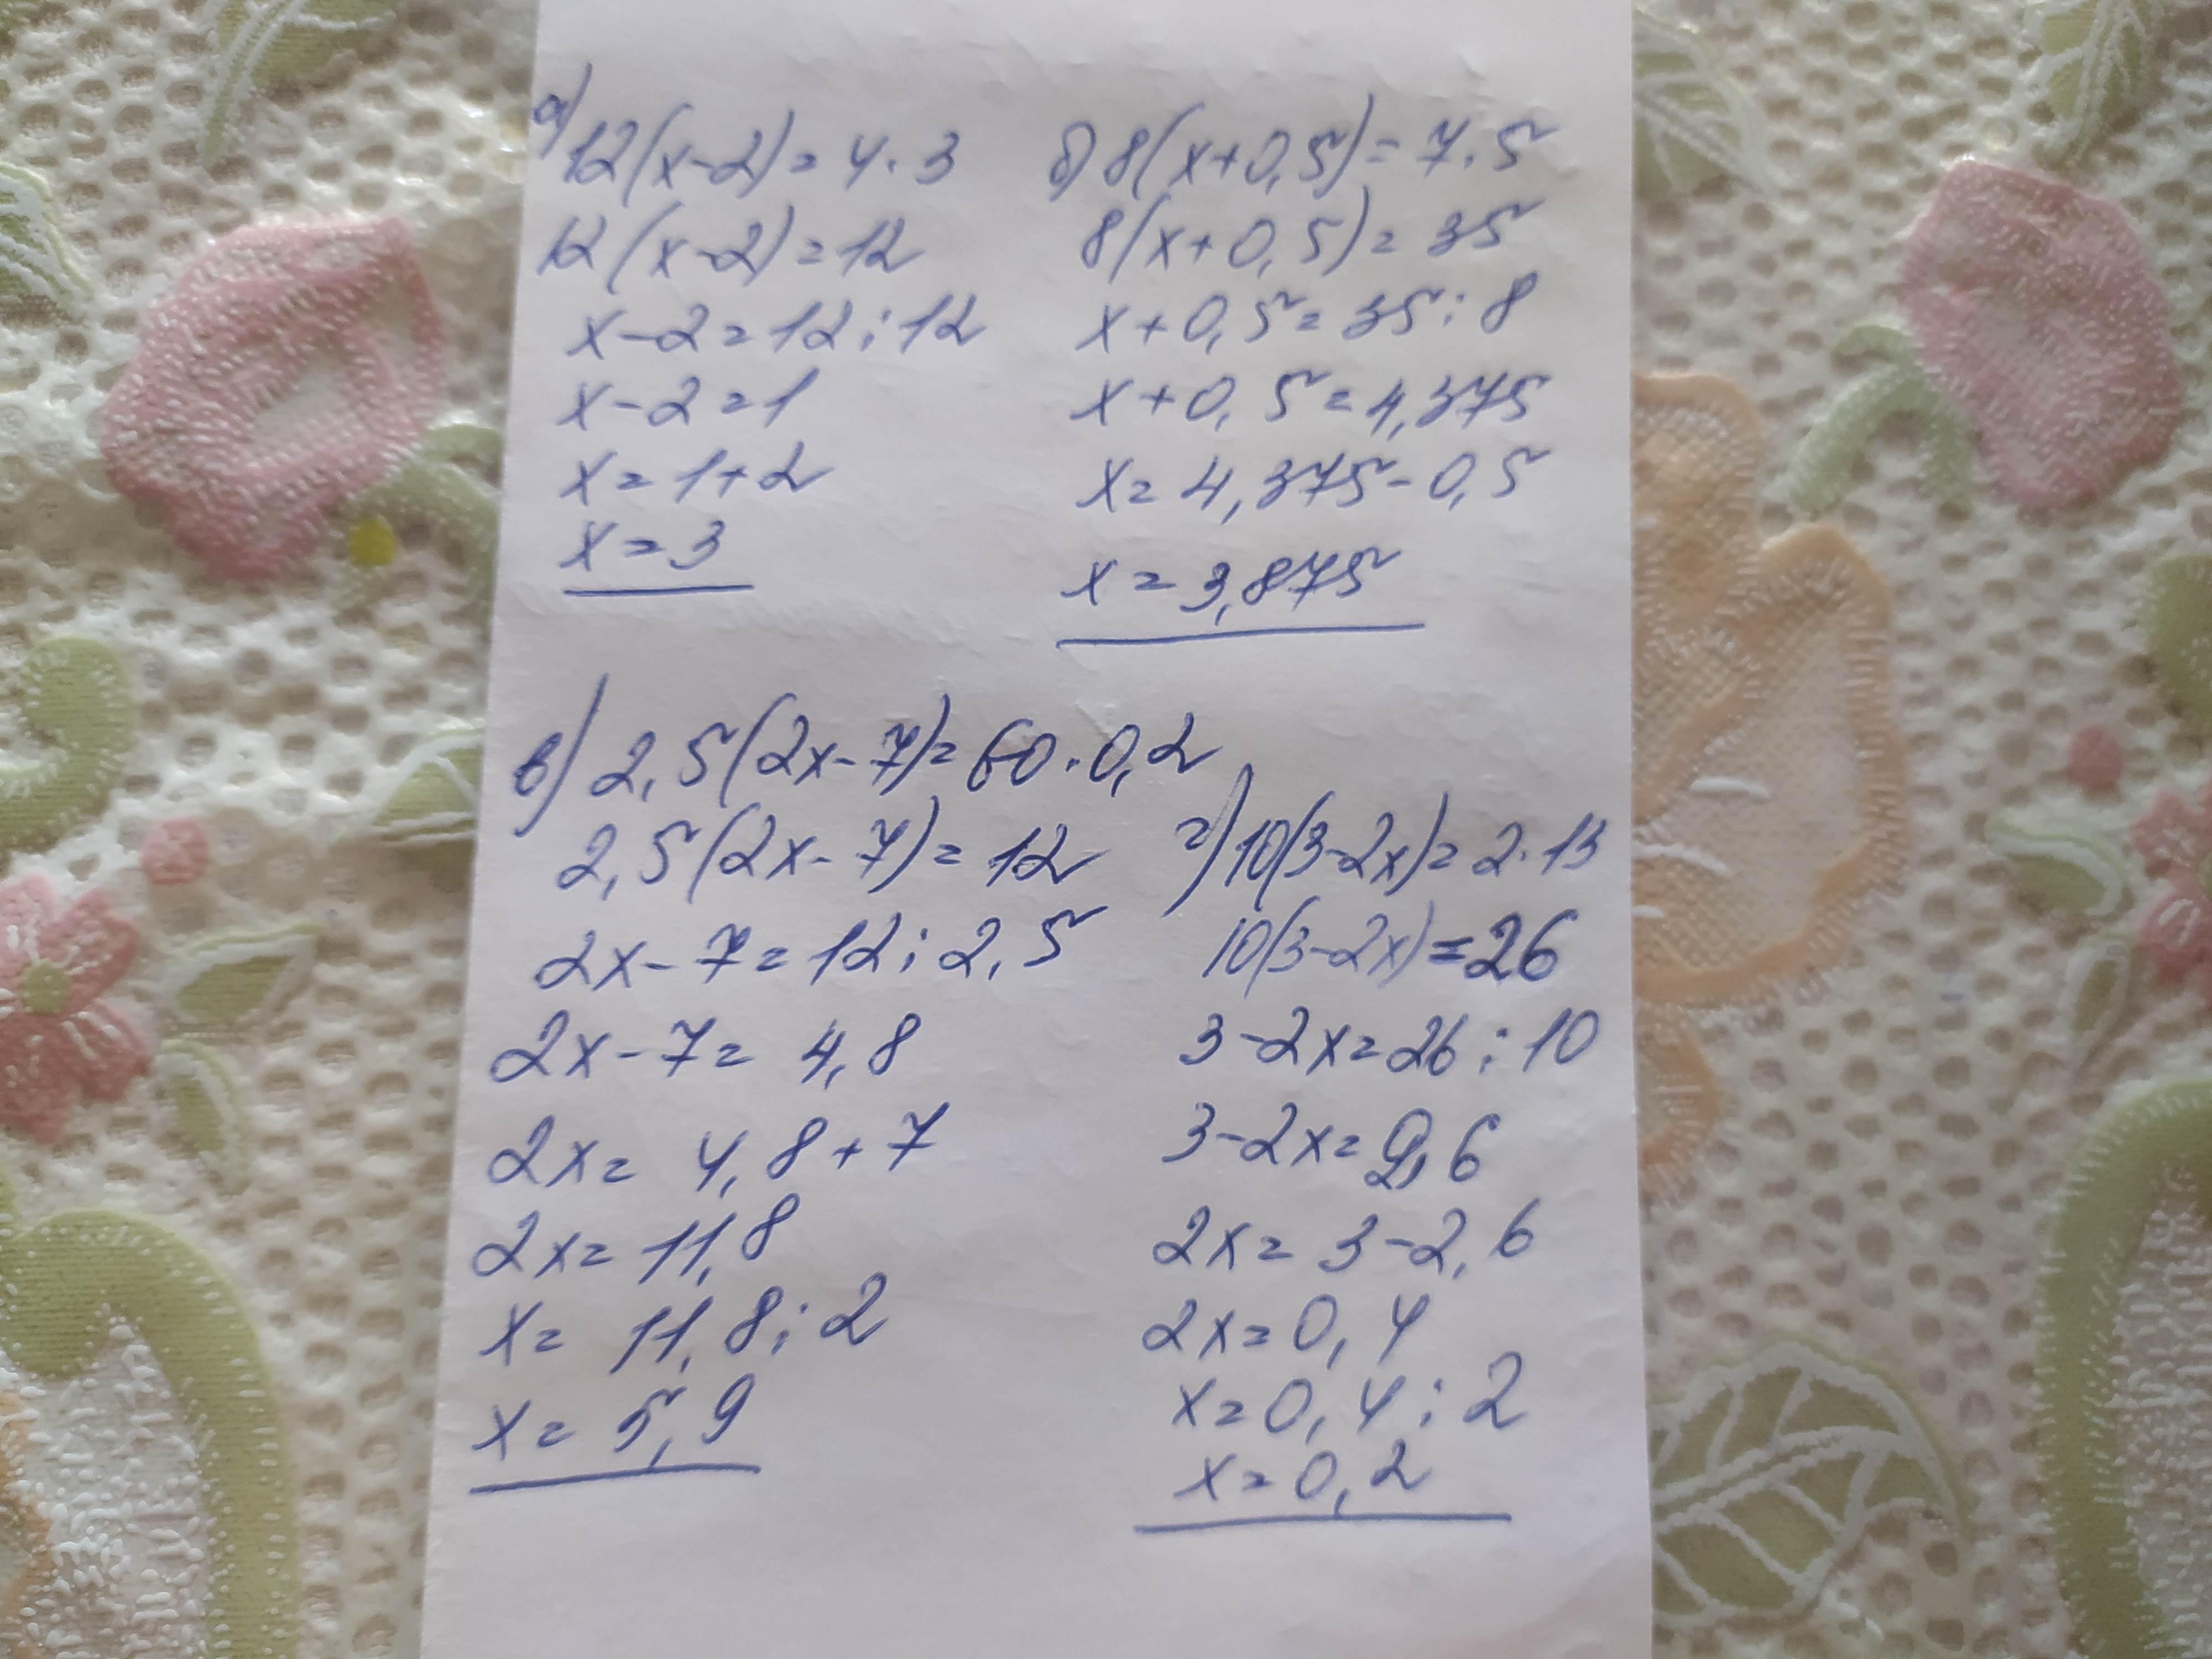 а) 12(x-2)=4·3
12(x-2)=12
x-2=12:12
x-2=1
x=1+2
x=3
б) 8(x+0,5)=7·5
8(x+0,5)=35
x+0,5=35:8
x+0,5=4,375
x=4,375-0,5
x=3,875
в) 2,5(2x-7)=60·0,2
2,5(2x-7)=12
2x-7=12:2,5
2x-7=4,8
2x=4,8+7
2x=11,8
x=11,8:2
x=5,9
г) 10(3-2x)=2·13
10(3-2x)=26
3-2x=26:10
3-2x=2,6
2x=3-2,6
2x=0,4
x=0,4:2
x=0,2